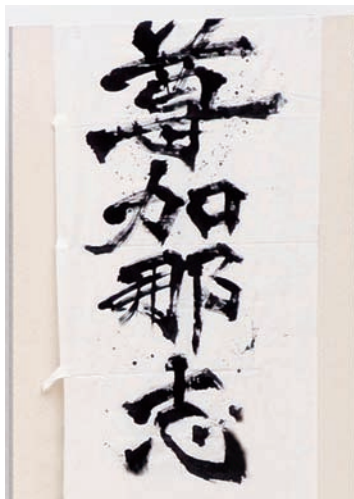 尊加那志